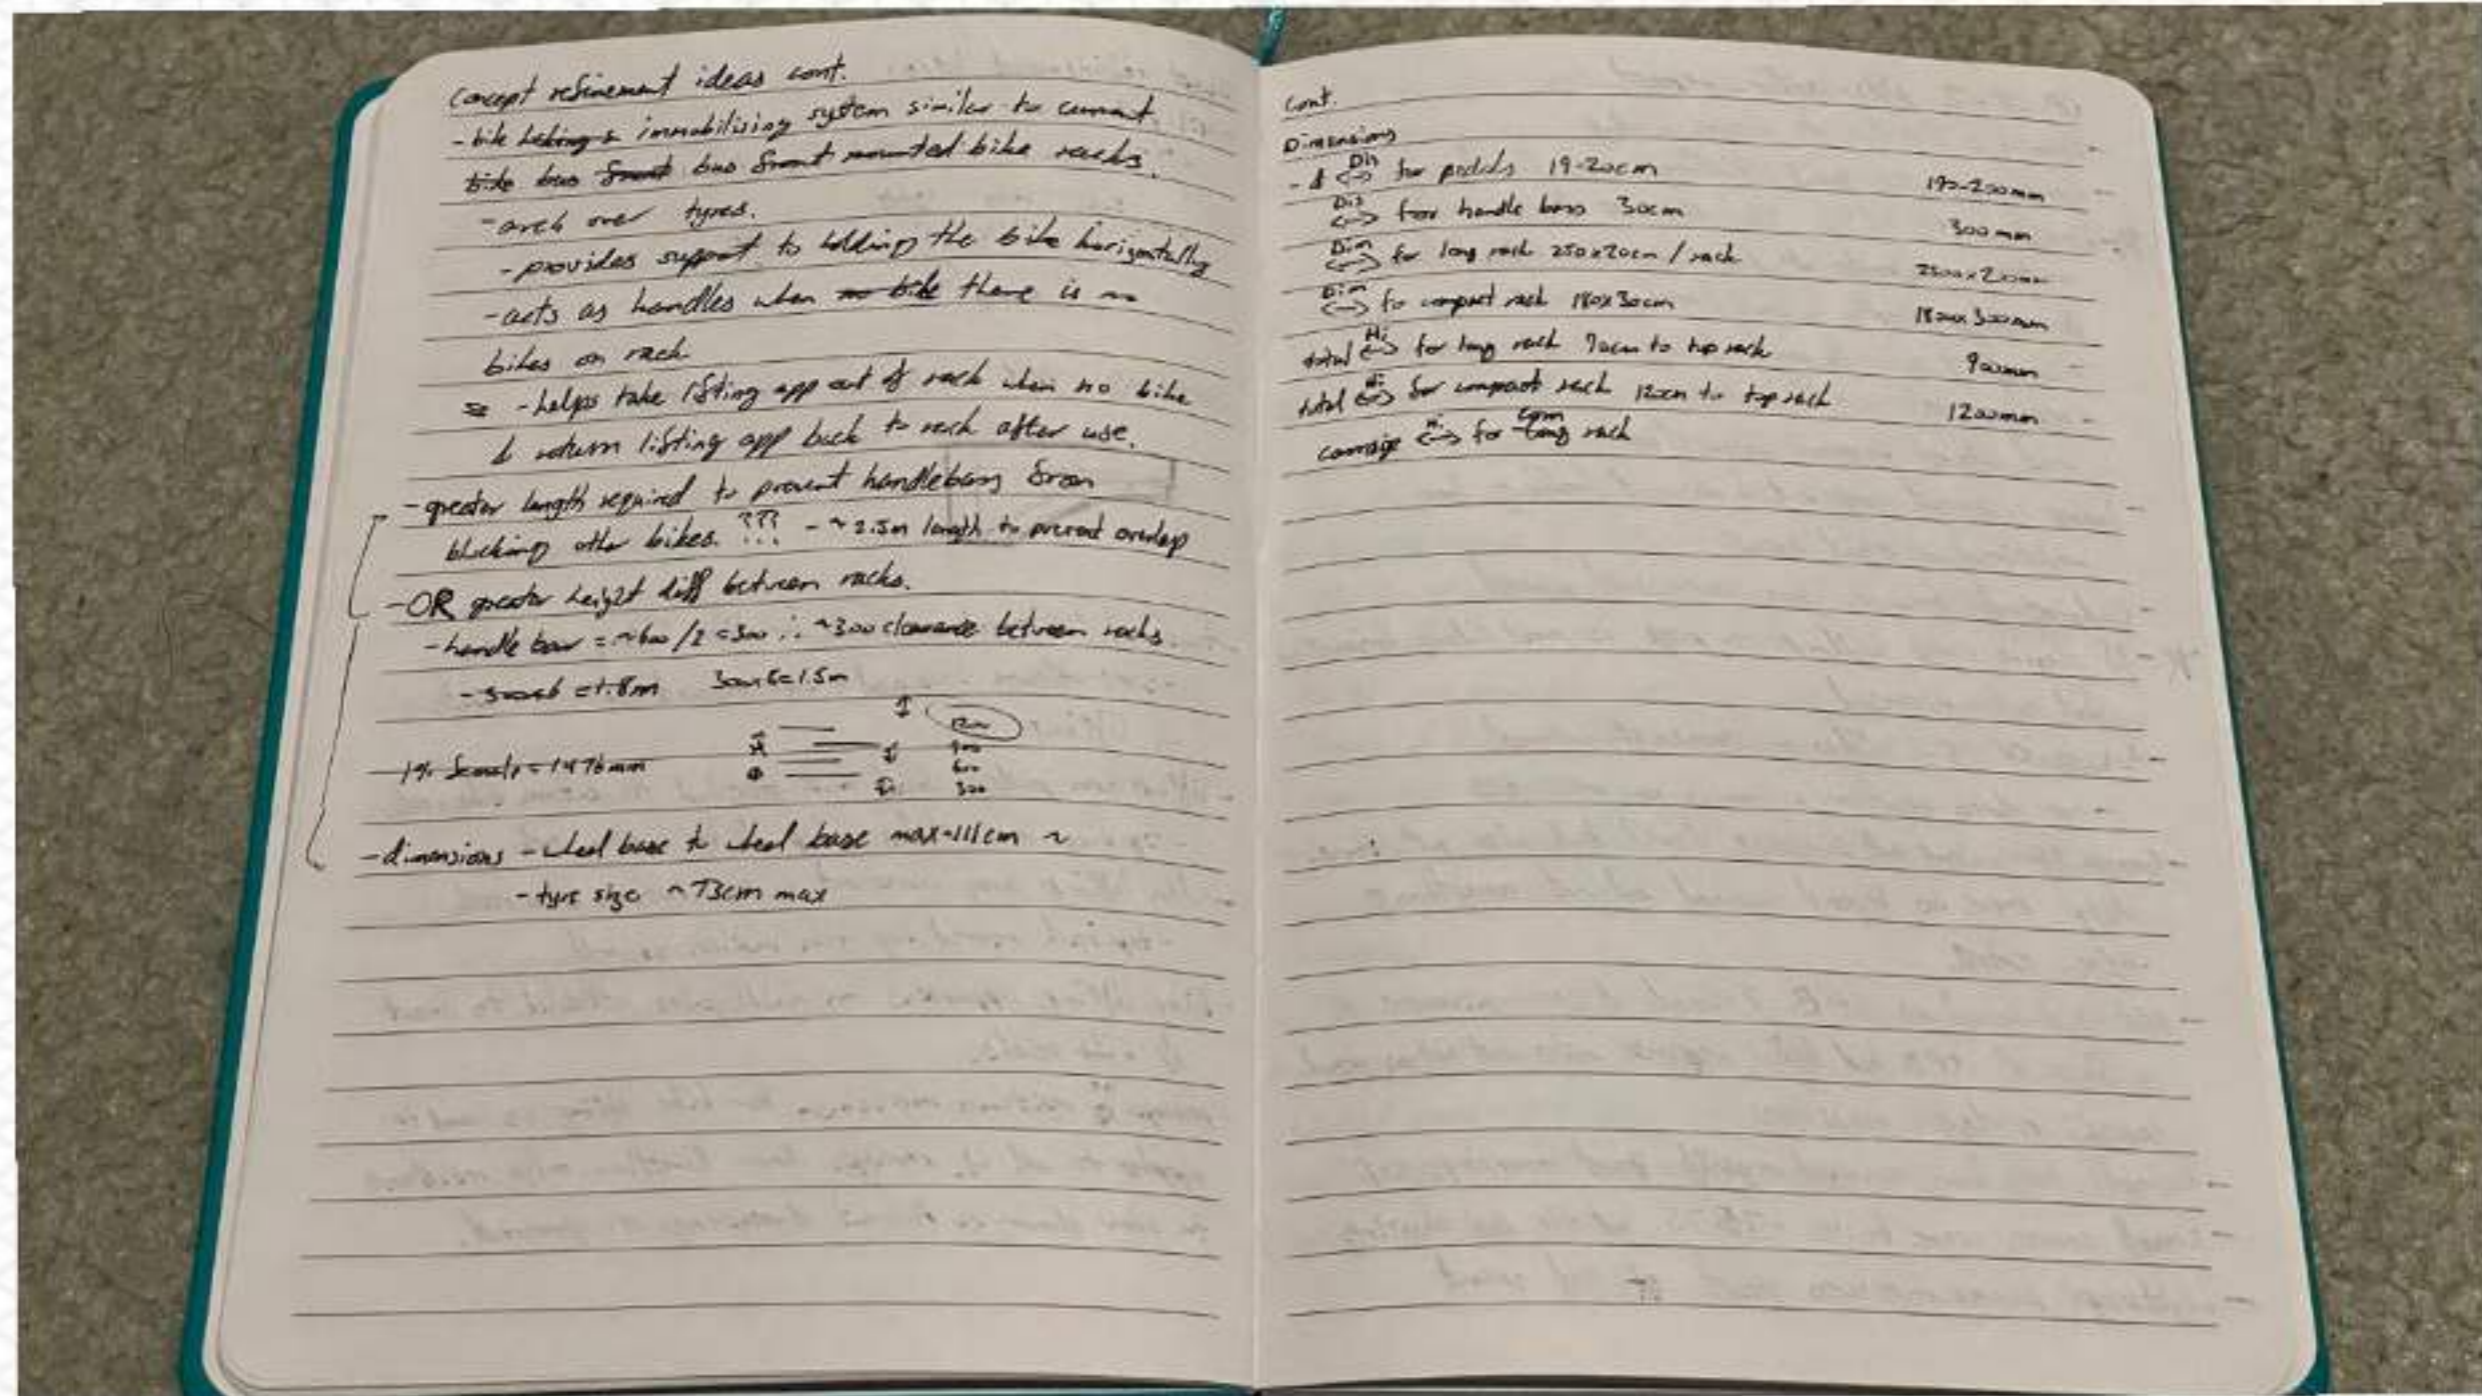 concept refinement ideas cont.
- bike locking & immobilising system similar to current
bike bus front bus front mounted bike racks.
- arch over tyres.
- provides support to holding the bike horizontally
- acts as handles when no bike there is no
bikes on rack
- helps take lifting app out of rack when no bike
& return lifting app back to rack after use.
- greater length required to prevent handlebars from
blocking other bikes. ??? - ~2.5m length to prevent overlap
- OR greater height diff between racks.
- handle bar = ~600/2 = 300 ∴ ~300 clearance between racks
- 300x6 = 1.8m 300x5=1.5m
1200
1% female = 1476mm
900
600
300
- dimensions - wheel base to wheel base max=111cm ~
- tyre size ~73cm max
cont.
Dimensions
- Dis <-> for pedals 19-20cm 190-200mm
Dis <-> for handle bars 30cm 300mm
Dim <-> for long rack 250x20cm / rack 2500x200mm
Dim <-> for compact rack 180x30cm 1800x300mm
total Hi <-> for long rack 90cm to top rack 900mm
total Hi <-> for compact rack 120cm to top rack 1200mm
carriage Hi <-> for long com rack